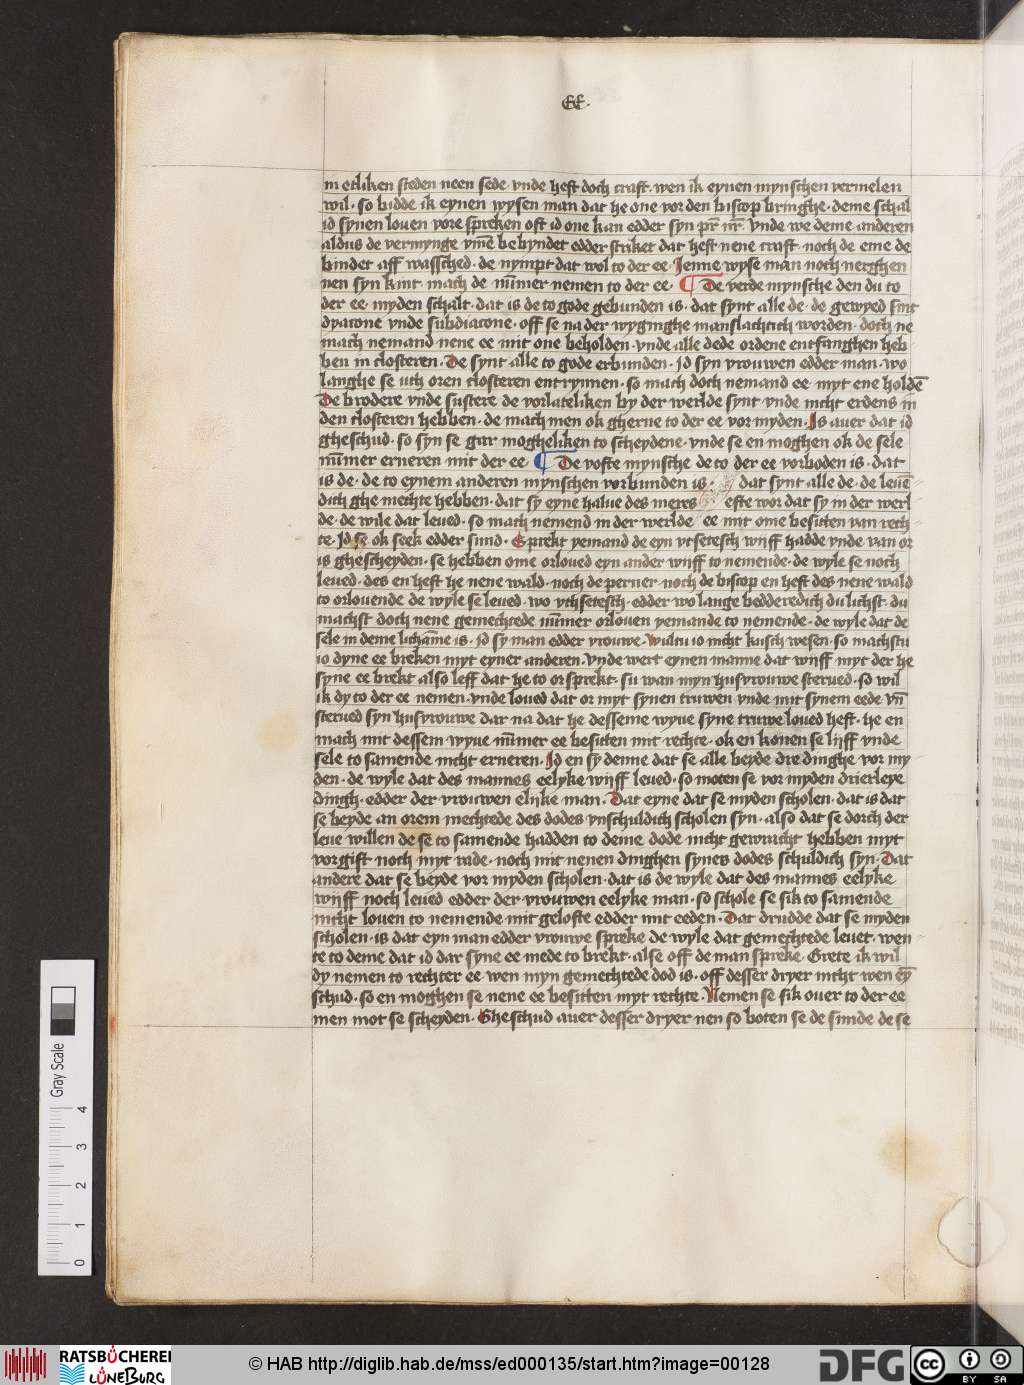 EE.
in etliken steden neen sede · vnde heft doch craft · wen ik eynen mynschen vermelen
wil · so bidde ik eynen wysen man dat he one vor den biscop bringhe · deme schal
id synen louen vore spreken oft id one kan edder syn pr̄ · vnde we deme anderen
aldus de vermynge be byndet edder striket dat heft nene craft · noch de eme de
bindet aff wassched · de nympt dat wol to der ee · Jenne wyse man noch nerghen
nen syn kint · mach de nūmer nemen to der ee · ¶ De verde mynsche den du to
der ee · myden schalt · dat is de to gode gebunden is · dat synt alle de · de gewyed sint
dyacone vnde subdiacone · off se na der wyginghe manslachtich worden · doch ne
mach nemand nene ee mit one beholden · vnde alle dede ordene entfanghen heb
ben in closteren · De synt alle to gode erbunden · Jd syn vrouwen edder man · wo
langhe se uth oren closteren entrynnen · so mach doch nemand ee · myt ene holdē
De brodere vnde sustere de vorlateliken by der werlde synt vnde nicht erdens in
den closteren hebben · de mach men ok gherne to der ee vor myden · Js auer dat id
gheschud · so syn se gar mogheliken to scheydene · vnde se en moghen ok de sele
nūmer erneren mit der ee · ¶ De vofte mynsche de to der ee vorboden is · dat
is de · de to eynem anderen mynschen vorbunden is · dat synt alle de · de leuē
dich ghe mechte hebben · dat sy eyne halue des meres efte wor dat sy in der werl
de · de wile dat leued · so mach nemend in der werlde ee mit ome besitten van rech
te · Jd se ok seek edder sund · Sprekt yemand de eyn vtsetesch wijff hadde vnde van or
is ghescheyden · se hebben ome orloued eyn ander wijff to nemende · de wyle se noch
leued · des en heft he nene wald · noch de perner noch de biscop en heft des nene wald
to orlouende de wyle se leued · wo vthsetesch · edder wo lange bedderedich du lichst · du
machst doch nene gemechtede nūmer orlouen yemande to nemende · de wyle dat de
sele in deme lichāme is · Jd sy man edder vrouwe · Wultu io nicht kusch wesen · so machstu
io dyne ee breken myt eyner anderen · vnde wert eynen manne dat wijff myt der he
syne ee brekt also leff dat he to or sprekt · su wan myn husvrouwe sterued · so wil
ik dy to der ee nemen · vnde loued dat or myt synen truwen vnde mit synem eede vn̄
sterued syn husvrouwe dar na dat he desseme wyue syne truwe loued heft · he en
mach mit dessem wyue nūmer ee besitten mit rechte · ok en konen se lijff vnde
sele to samende nicht erneren · Jd en sy denne dat se alle beyde dre dinghe vor my
den · de wyle dat des mannes eelyke wijff leued · so moten se vor myden drierleye
dingh · edder der vrouwen elijke man · Dat eyne dat se myden scholen · dat is dat
se beyde an orem mechtede des dodes vnschuldich scholen syn · also dat se dorch der
leue willen de se to samende hadden to deme dode nicht gewracht hebben myt
vorgift noch myt rade · noch mit nenen dinghen synes dodes schuldich syn · Dat
andere dat se beyde vor myden scholen · dat is de wyle dat des mannes eelyke
wijff noch leued edder der vrouwen eelyke man · so schole se sik to samende
nicht louen to nemende mit gelofte edder mit eeden · Dat drudde dat se myden
scholen · is dat eyn man edder vrouwe spreke de wyle dat gemechtede leuet · wen
te to deme dat id dar syne ee mede to brekt · alse off de man spreke · Grete ik wil
dy nemen to rechter ee wen myn gemechtede dod is · off desser dryer nicht wen eȳ
schud · so en moghen se nene ee besitten myt rechte · Nemen se sik ouer to der ee
men mot se scheyden · Gheschud auer desser dryer nen so boten se de sunde de se
Gray Scale
0 1 2 3 4
RATSBÜCHEREI LÜNEBURG
© HAB http://diglib.hab.de/mss/ed000135/start.htm?image=00128
DFG
cc BY SA